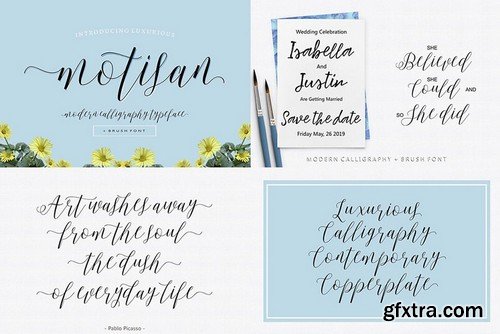 INTRODUCING LUXURIOUS
motisan
modern calligraphy typeface
+ BRUSH FONT
Wedding Celebration
Isabella
And
Justin
Are Getting Married
Save the date
Friday May, 26 2019
SHE
Believed
SHE
Could AND
SO She did
MODERN CALLIGRAPHY + BRUSH FONT
Art washes away
from the soul
the dush
of everyday life
- Pablo Picasso -
Luxurious
Calligraphy
Contemporary
Copperplate
gfxtra.com